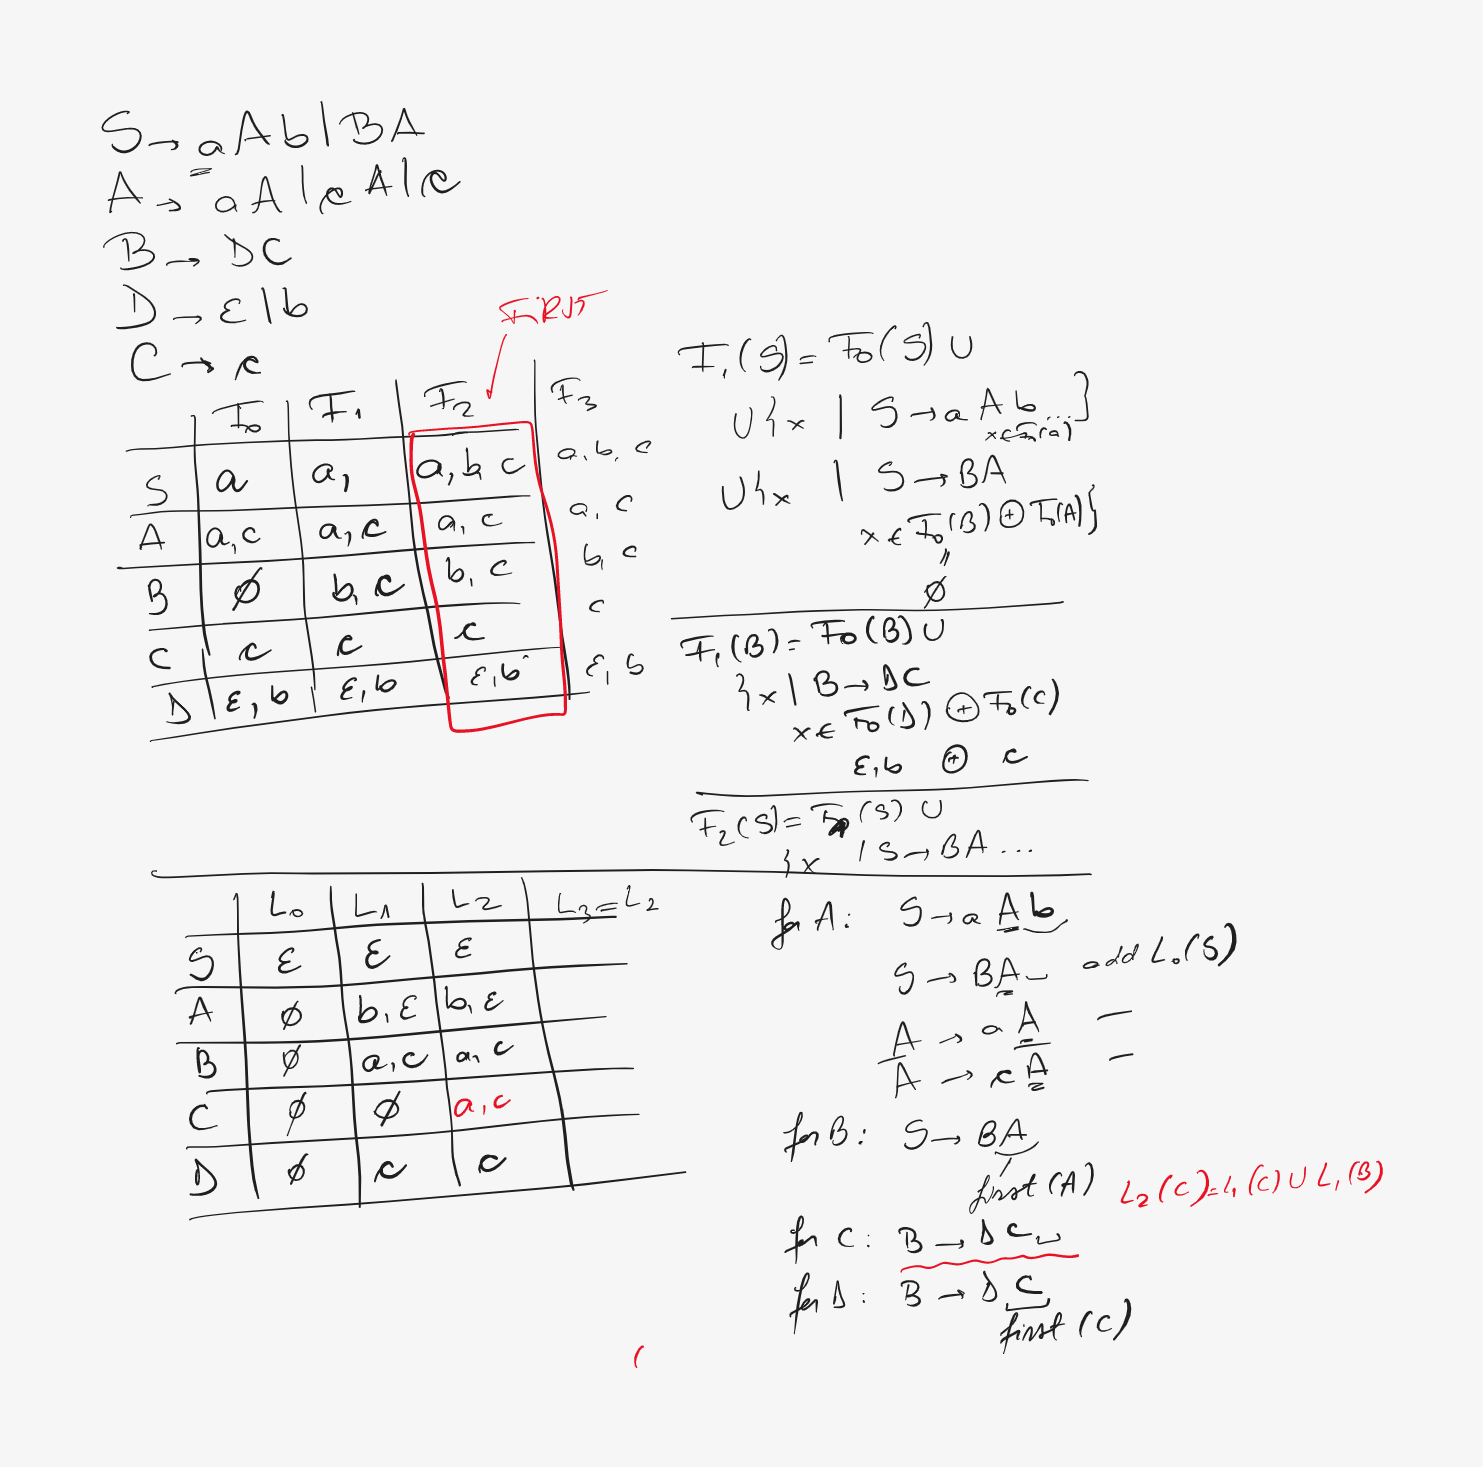 S → aAb | BA
A → aA | cA | c
B → DC
D → ε | b
C → c
FIRST
F₀ F₁ F₂ F₃
S a a, a, b, c a, b, c
A a, c a, c a, c a, c
B ∅ b, c b, c b, c
C c c c c
D ε, b ε, b ε, b ε, b
F₁(S) = F₀(S) ∪
∪ {x | S → aAb...}
x ∈ F₀(a)
∪ {x | S → BA
x ∈ F₀(B) ⊕ F₀(A)}
||
∅
F₁(B) = F₀(B) ∪
{x | B → DC
x ∈ F₀(D) ⊕ F₀(C)
ε, b ⊕ c
F₂(S) = F₁(S) ∪
{x | S → BA ...
L₀ L₁ L₂ L₃ = L₂
S ε ε ε
A ∅ b, ε b, ε
B ∅ a, c a, c
C ∅ ∅ a, c
D ∅ c c
for A: S → aAb
S → BA add L₀(S)
A → aA —
A → cA —
for B: S → BA
first(A)
L₂(C) = L₁(C) ∪ L₁(B)
for C: B → DC
for D: B → DC
first(C)
(